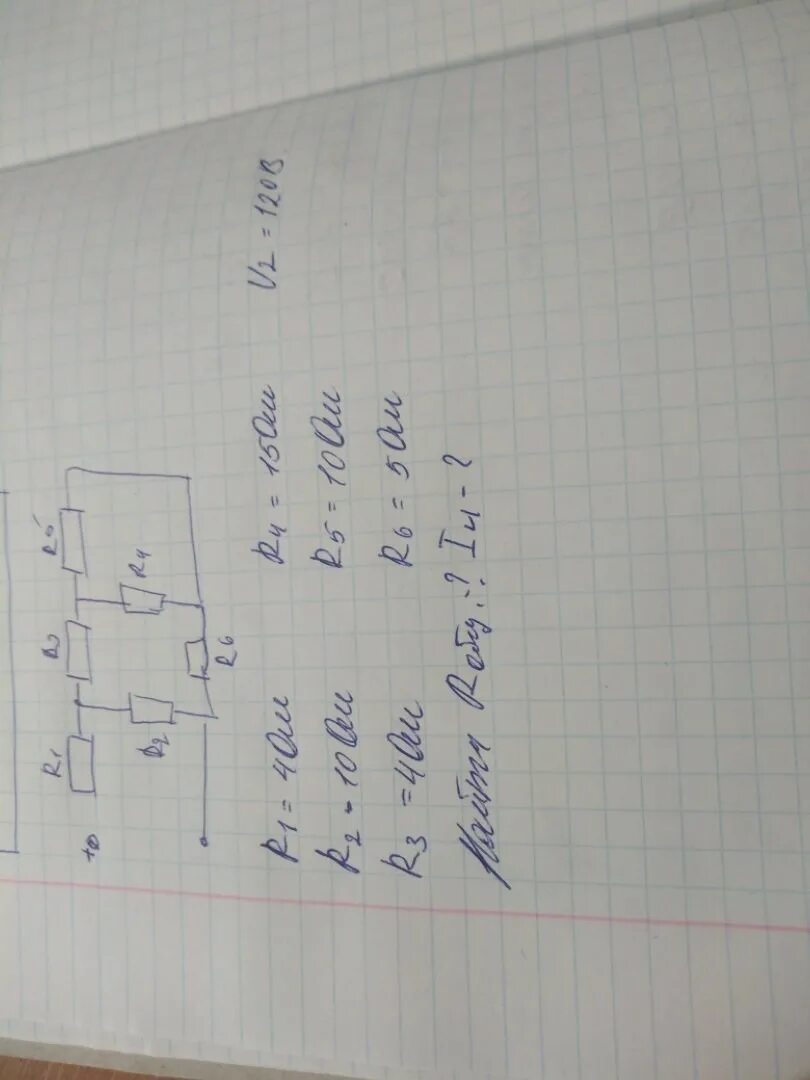 R1 R3 R5
+
R2 R4
R6
R1 = 4Ом R4 = 15Ом U2 = 120В
R2 = 10Ом R5 = 10Ом
R3 = 4Ом R6 = 5Ом
Найти Rобщ.-? I4-?